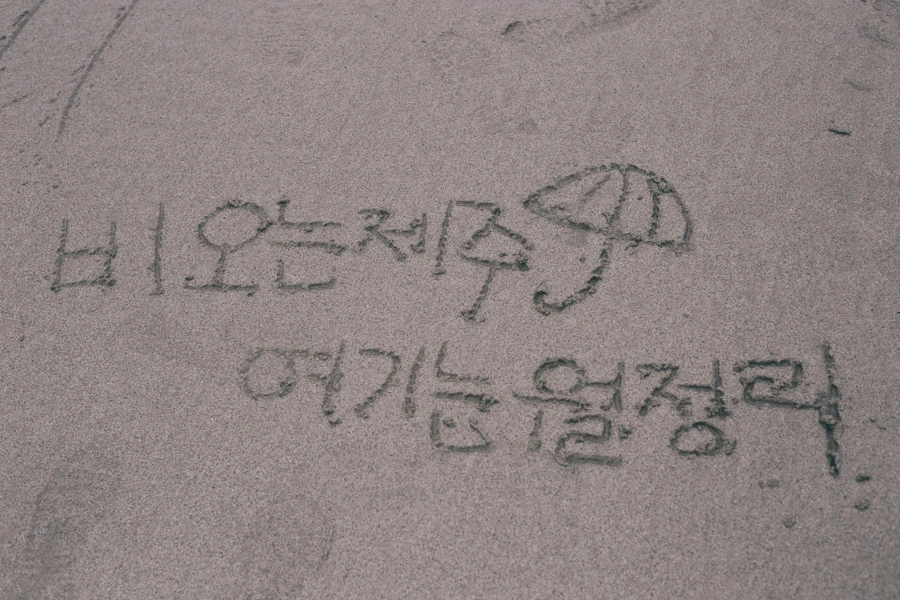 비오는제주
여기는 월정리